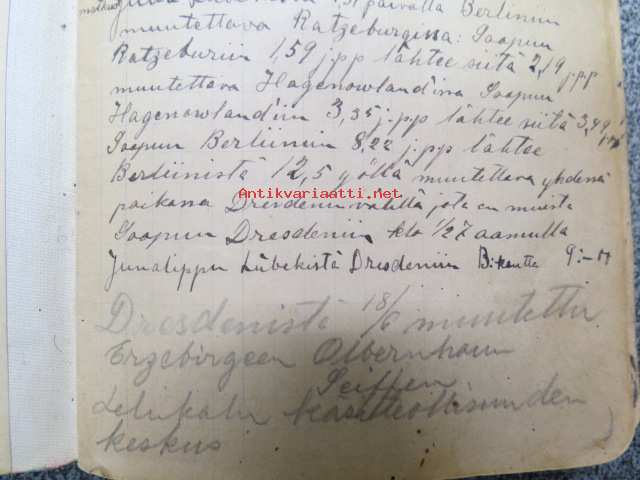 päivällä Berliniin
muutettava Ratzeburgissa: Saapuu
Ratzeburiin 1,59 j.pp lähtee siitä 2,19 j.pp
muutettava Hagenowlandina Saapuu
Hagenowlandiin 3,35 j.pp lähtee siitä 3,49
Saapuu Berliiniin 8,22 j.pp lähtee
Berliinistä 12,5 yöllä muutettava yhdessä
paikassa Dresdenin välillä jota en muista
Saapuu Dresdeniin klo 1/2 7 aamulla
Junalippu Lübekistä Dresdeniin 9:-
Antikvariaatti.net
Dresdenistä 18/6 muutettu
Erzebirgeen Olbernhaun
Seiffen
Lelukalu käsiteollisuuden
keskus